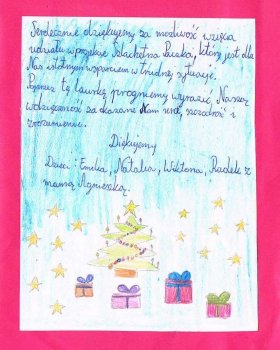 Serdecznie dziękujemy za możliwość wzięcia
udziału w projekcie Szlachetna Paczka, która jest dla
Nas istotnym wsparciem w trudnej sytuacji.
Poprzez tę laurkę pragniemy wyrazić, Naszą
wdzięczność za okazane Nam serce, szczodrość i
zrozumienie.
Dziękujemy
Dzieci: Emilia, Natalia, Wiktoria, Radek z
mamą Agnieszką.